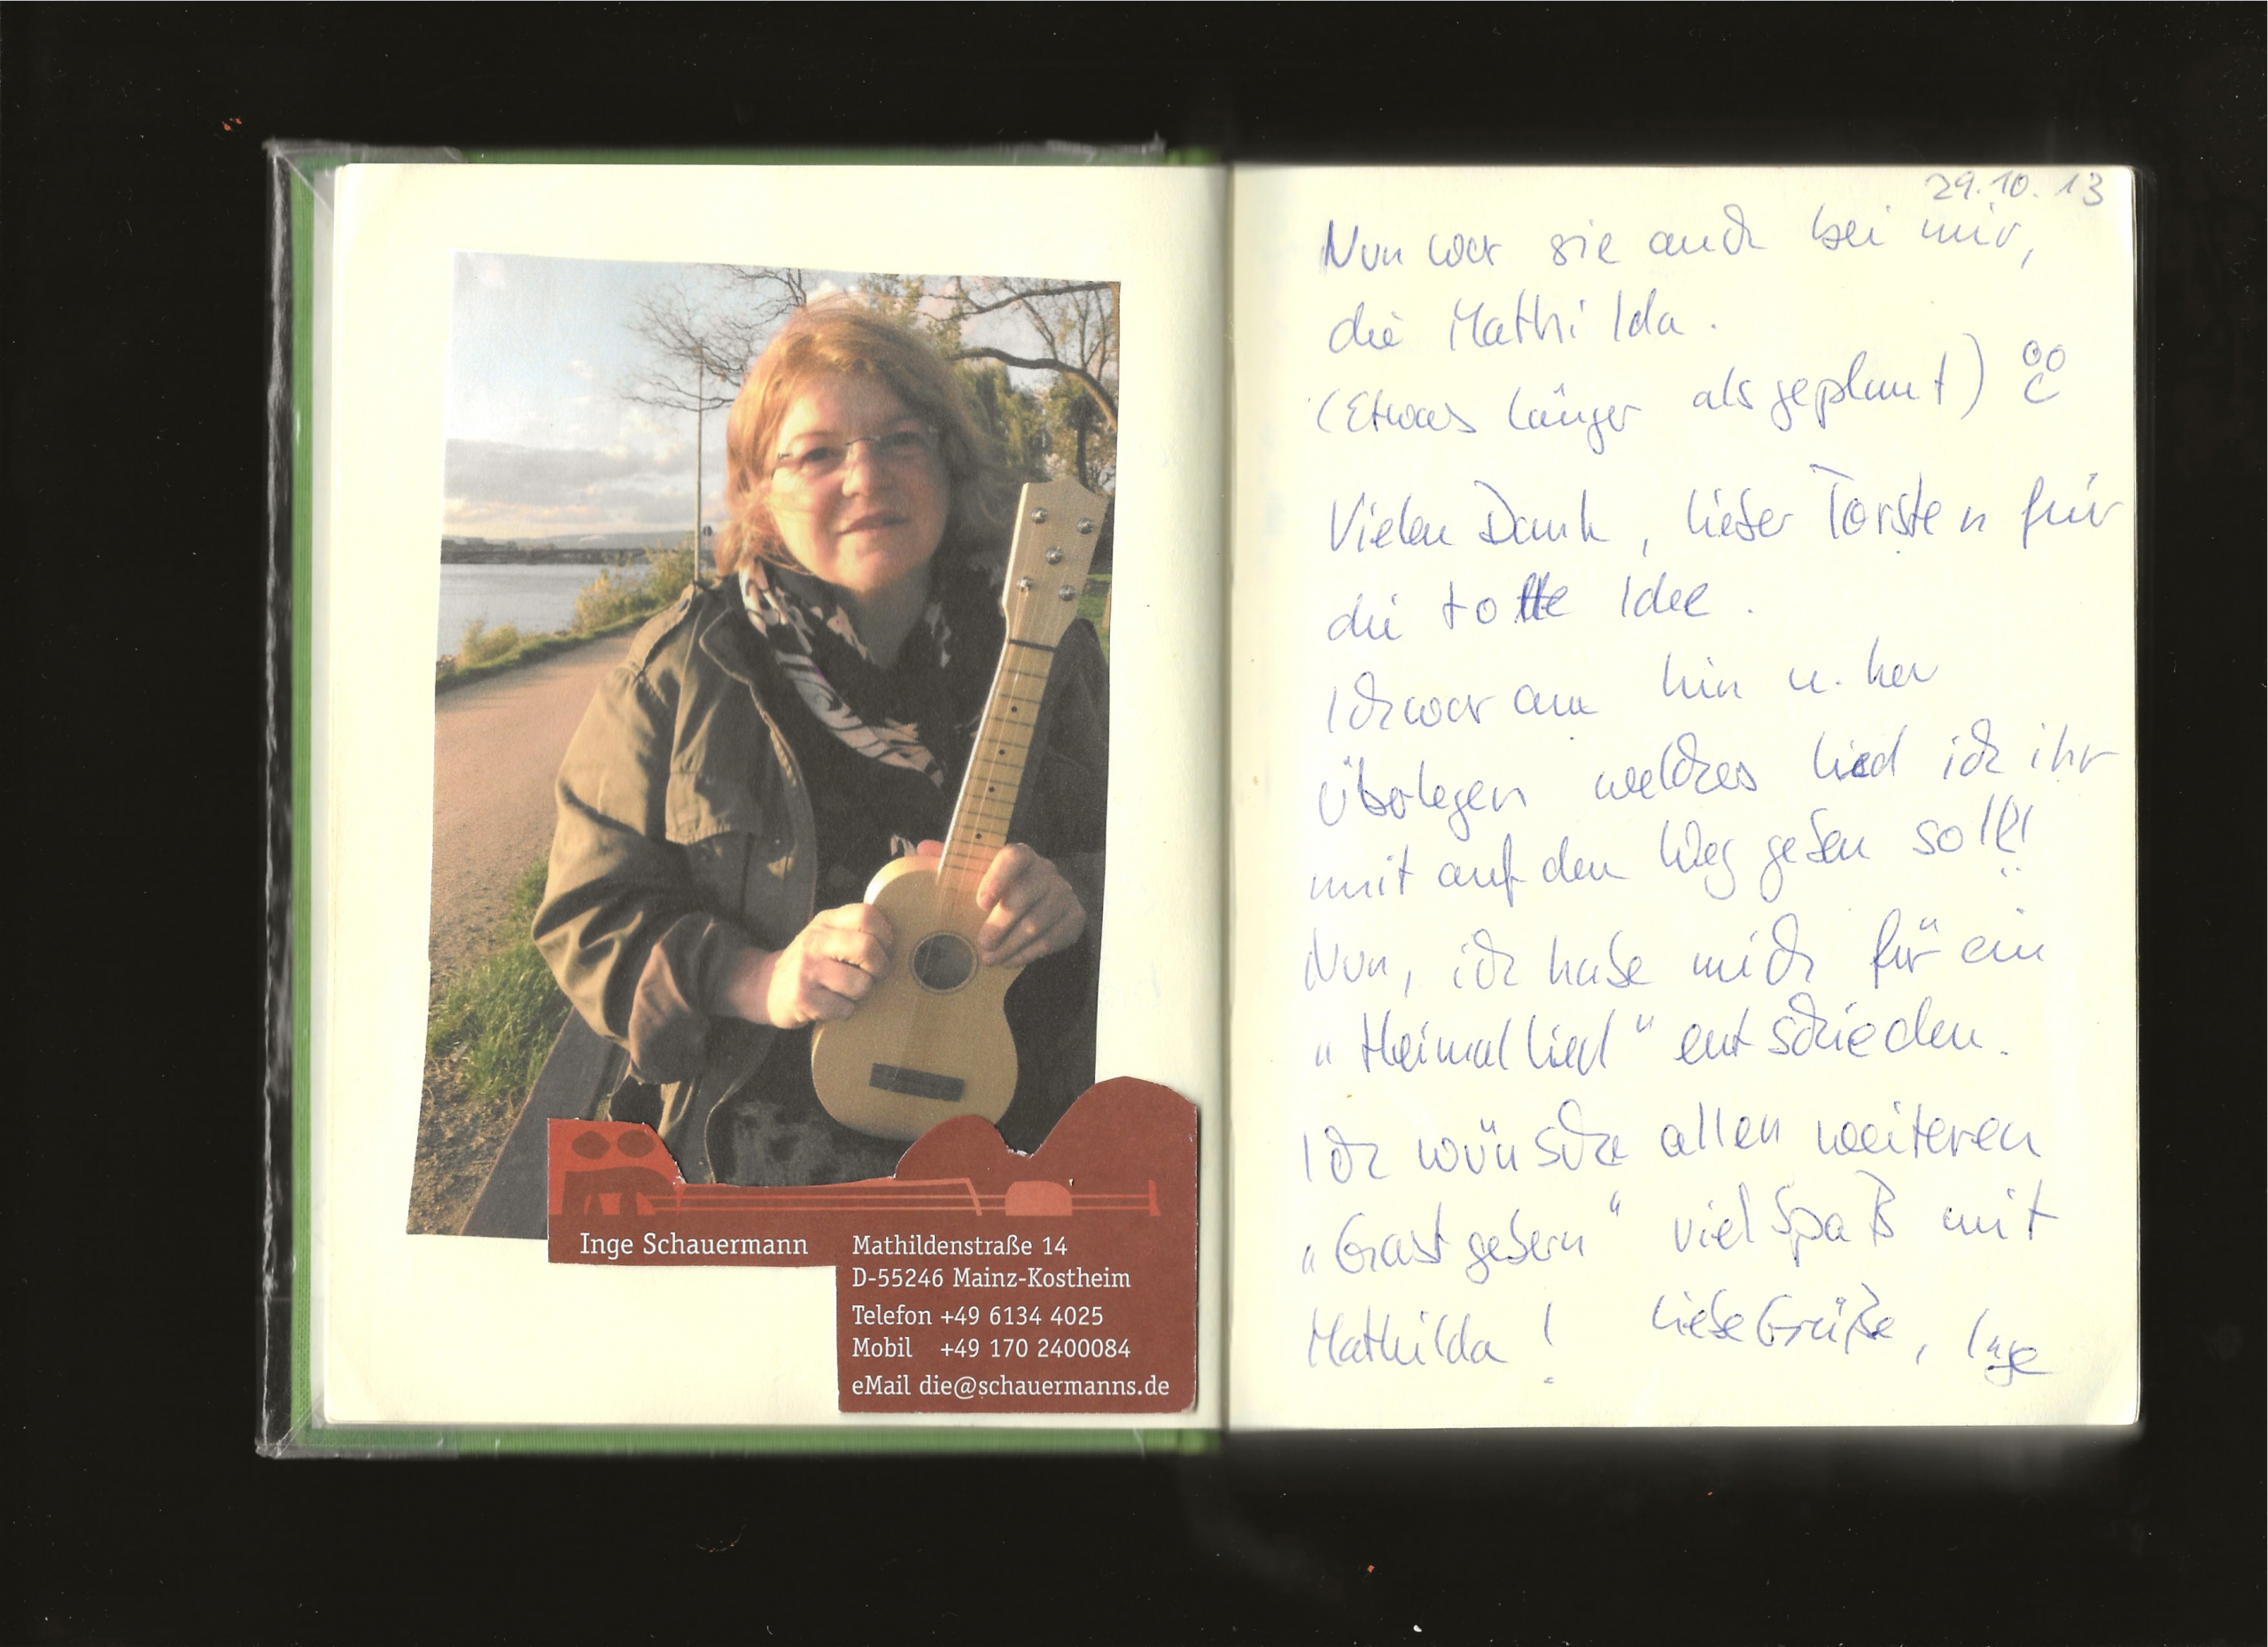 Inge Schauermann
Mathildenstraße 14
D-55246 Mainz-Kostheim
Telefon +49 6134 4025
Mobil +49 170 2400084
eMail die@schauermanns.de
29.10.13
Nun war sie auch bei mir,
die Mathilda.
(Etwas länger als geplant)
Vielen Dank, lieber Torsten für
die tolle Idee.
Ich war am hin u. her
überlegen welches Lied ich ihr
mit auf den Weg geben soll!!
Nun, ich habe mich für ein
"Heimatlied" entschieden.
Ich wünsche allen weiteren
"Gastgebern" viel Spaß mit
Mathilda! Liebe Grüße, Inge